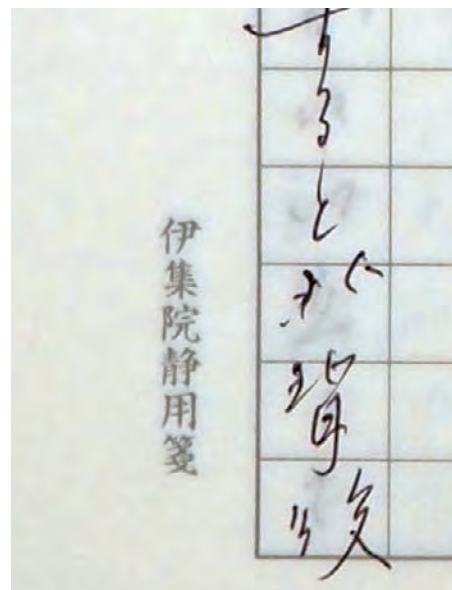 すると背後
伊集院静用箋